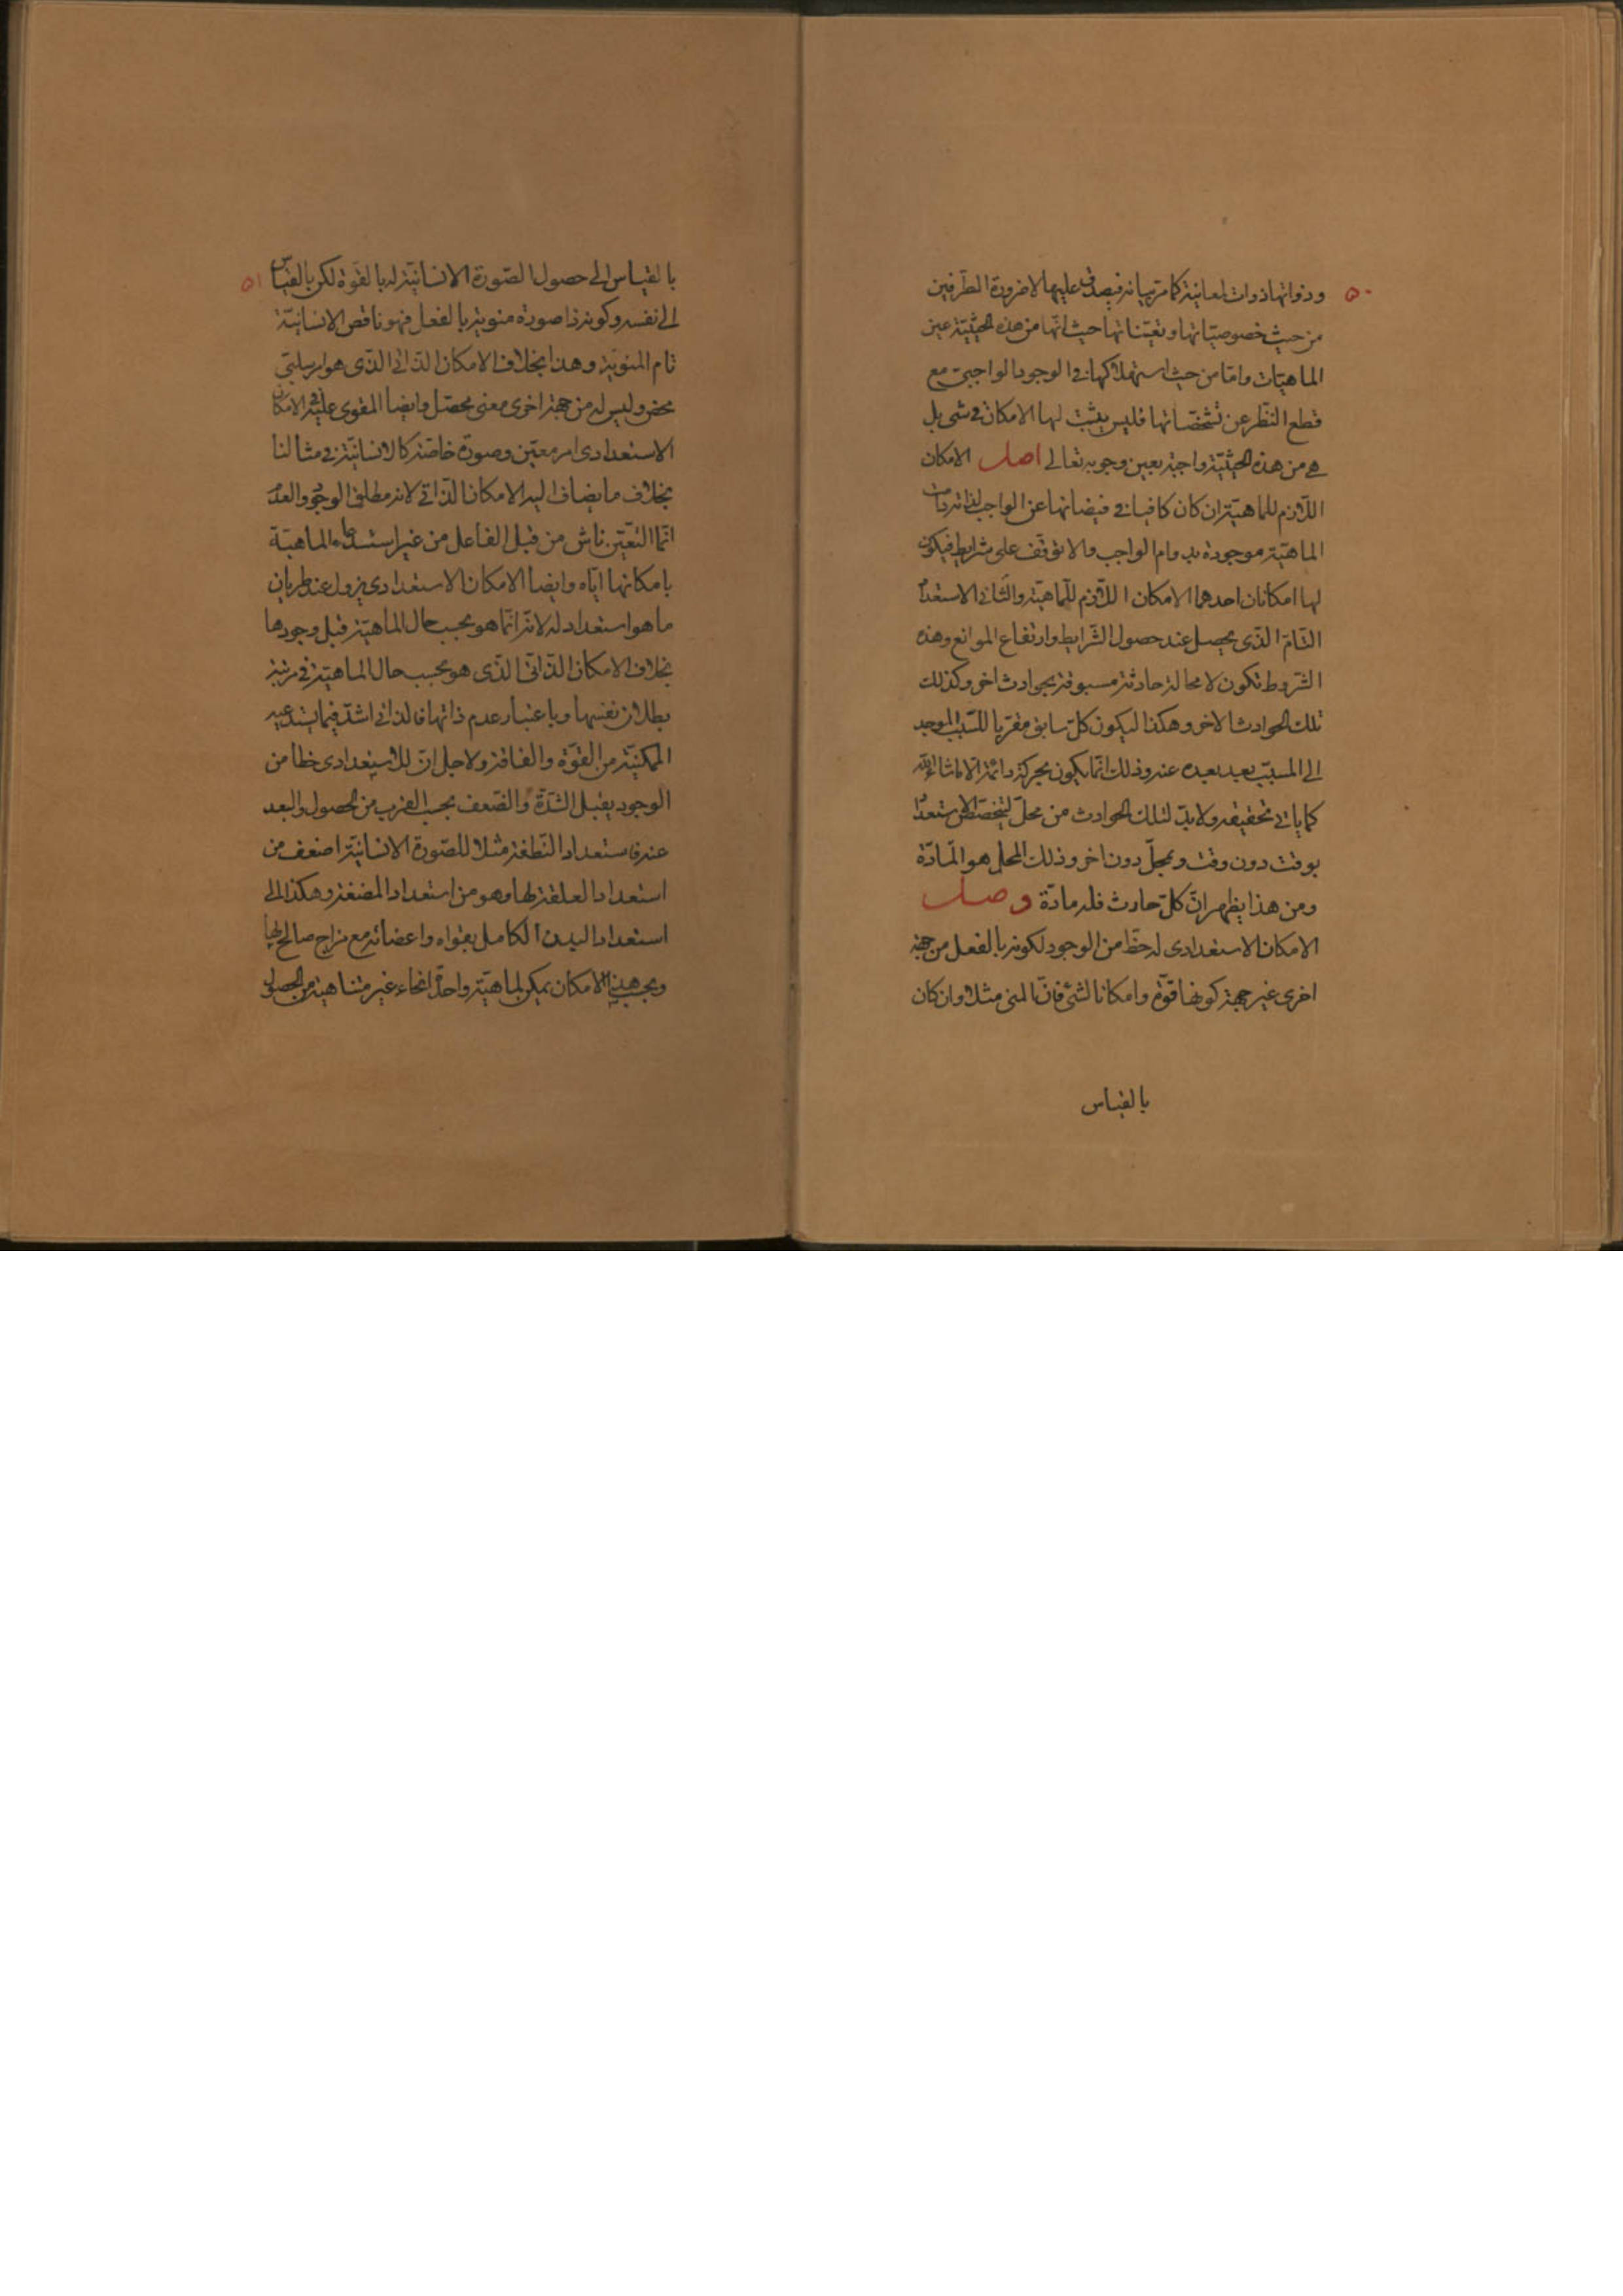 ٥٠
وذواتها ذوات لمعانيه كما مر بيانه فيصدق عليها لاضرورة الطرفين
من حيث خصوصياتها وتعيناتها حيث انها من هذه الحيثية عين
الماهيات واما من حيث استهلاكها في الوجود الواجبي مع
قطع النظر عن تشخصاتها فليس يثبت لها الامكان في شي بل
هي من هذه الحيثية واجبة بعين وجوبه تعالى اصل الامكان
اللازم للماهية ان كان كافيا في فيضانها عن الواجب لذاته دامت
الماهية موجودة بدوام الواجب والا توقف على شرايط فيكون
لها امكانان احدهما الامكان اللازم للماهية والثاني الاستعداد
التام الذي يحصل عند حصول الشرايط وارتفاع الموانع وهذه
الشروط تكون لا محالة حادثة مسبوقة بحوادث اخر وكذلك
تلك الحوادث الاخر وهكذا ليكون كل سابق مقربا للسبب الموجد
الى المسبب بعد بعده عنه وذلك انما يكون بحركة دائمة الا ماشاء الله
كما ياتي تحقيقه ولا بد لتلك الحوادث من محل ليتخصص الاستعداد
بوقت دون وقت وبمحل دون اخر وذلك المحل هو المادة
ومن هذا يظهر ان كل حادث فله مادة وصل
الامكان الاستعدادى له حظ من الوجود لكونه بالفعل من جهة
اخرى غير جهة كونها قوة وامكانا لشئ فان المنى مثلا وان كان
بالقياس
٥١
بالقياس الى حصول الصورة الانسانية له بالقوة لكن بالقياس
الى نفسه وكونه ذا صورة منوية بالفعل فهو ناقص الانسانية
تام المنوية وهذا بخلاف الامكان الذاتي الذى هو امر سلبي
محض وليس له من جهة اخرى معنى محصل وايضا المقوى عليه في الامكان
الاستعدادى امر معين وصورة خاصة كالانسانية في مثالنا
بخلاف ما يضاف اليه الامكان الذاتي لانه مطلق الوجود والعدم
انما التعين ناش من قبل الفاعل من غير استدعاء الماهية
بامكانها اياه وايضا الامكان الاستعدادى يزول عند طريان
ما هو استعداد له لانه انما هو بحسب حال الماهية قبل وجودها
بخلاف الامكان الذاتي الذى هو بحسب حال الماهية في مرتبة
بطلان نفسها وباعتبار عدم ذاتها فالذاتي اشد فيما يستدعيه
الممكنية من القوة والفاقة ولاجل ان للاستعدادى حظا من
الوجود يقبل الشدة والضعف بحسب القرب من الحصول والبعد
عنه فاستعداد النطفة مثلا للصورة الانسانية اضعف من
استعداد العلقة لها وهو من استعداد المضغة وهكذا الى
استعداد البدن الكامل بقواه واعضائه مع مزاج صالح لها
وبحسب هذا الامكان يمكن لماهية واحدة انحاء غير متناهية من الحصول